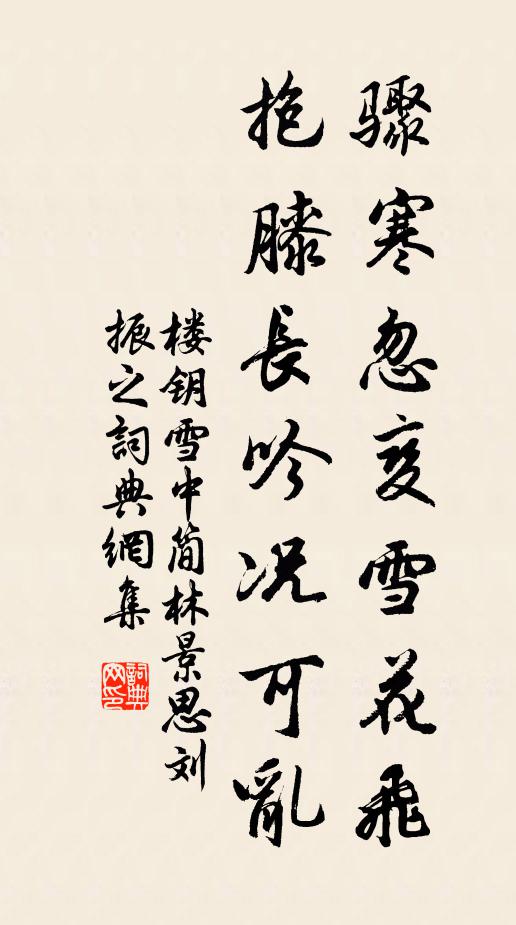 骤寒忽变雪花飛
抱膝長吟况可亂
楼钥雪中简林景思刘
振之詞典網集
詞典网印